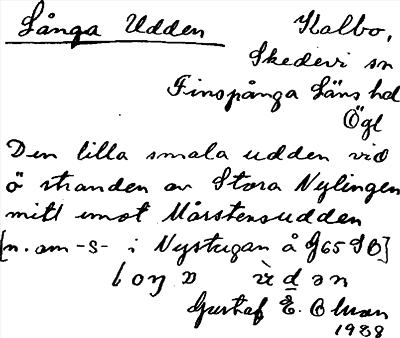 Långa Udden Kalbo,
Skedevi sn
Finspånga Läns hd
Ögl
Den lilla smala udden vid
ö stranden av Stora Nylingen
mitt emot Mårstensudden
[n. om -s- i Nystugan å G65 SO]
Gustaf E. Olman
1938